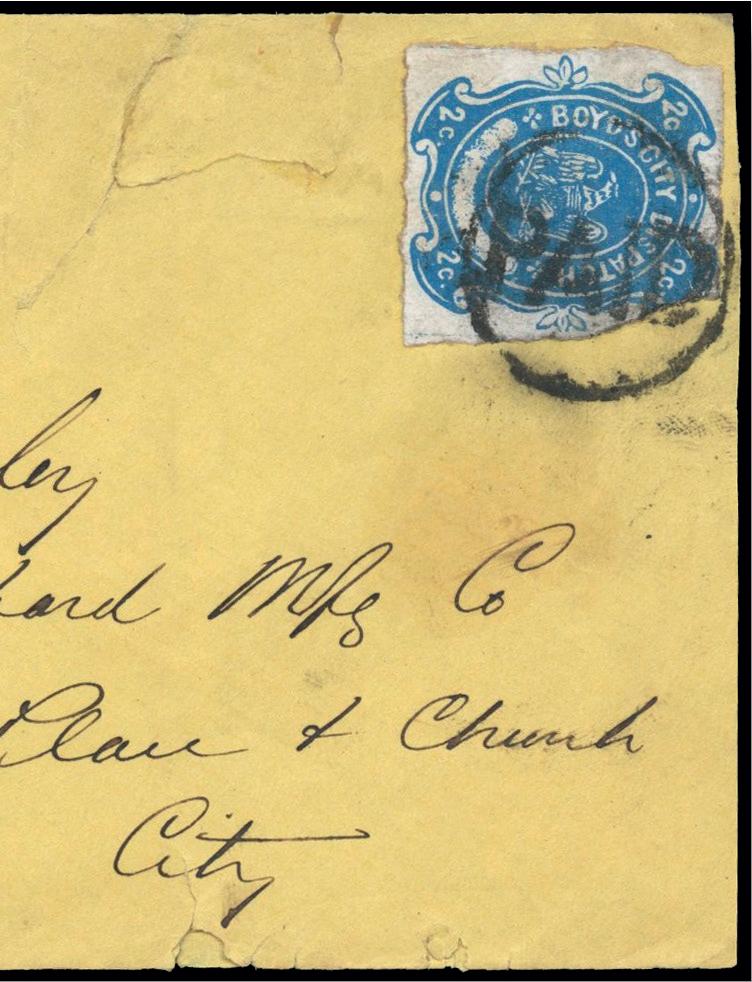 2c. BOYD'S CITY DISPATCH 2c.
2c. 2c.
PAID
ley
ard Mfg Co
Place & Church
City